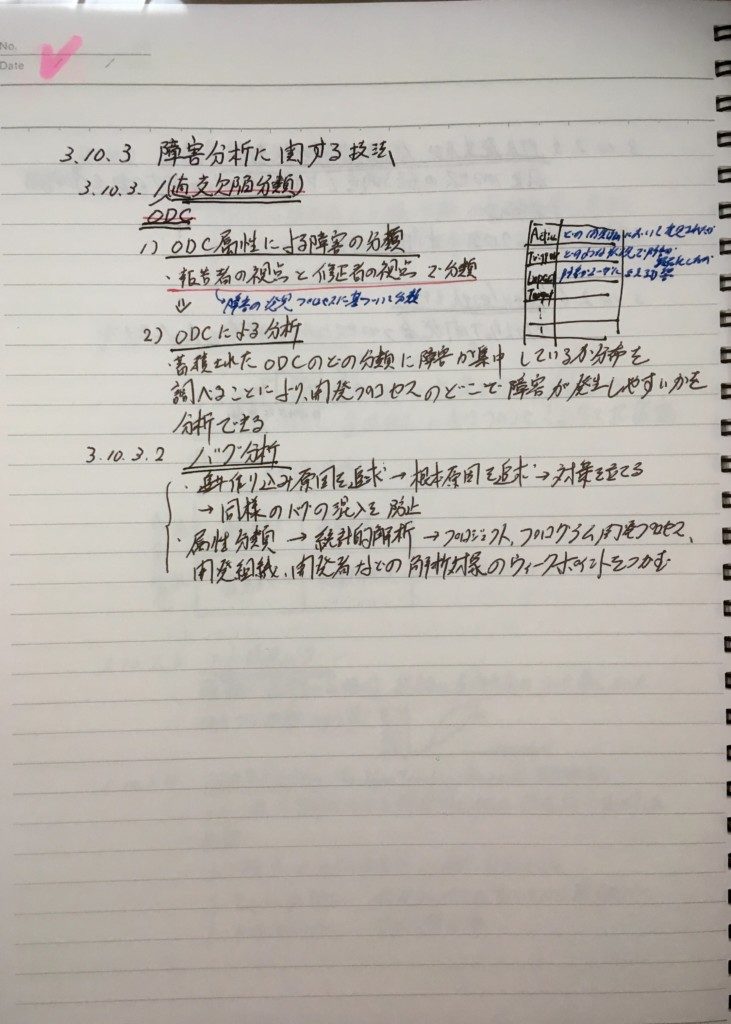 No.
Date
3.10.3 障害分析に関する技法
3.10.3.1 (直交欠陥分類)
ODC
1) ODC属性による障害の分類
・報告者の視点と修正者の視点で分類
⇓ 障害の発見プロセスに基づいて分類
Activi
Trigger
Impact
Target
2) ODCによる分析
・蓄積されたODCのどの分類に障害が集中しているか分布を
調べることにより、開発プロセスのどこで障害が発生しやすいかを
分析できる
3.10.3.2 バグ分析
・作り込み原因を追求→根本原因を追求→対策を立てる
→同様のバグの混入を防止
・属性分類→統計的解析→プロジェクト、プログラム、開発プロセス、
開発組織、開発者などの解析対象のウィークポイントをつかむ